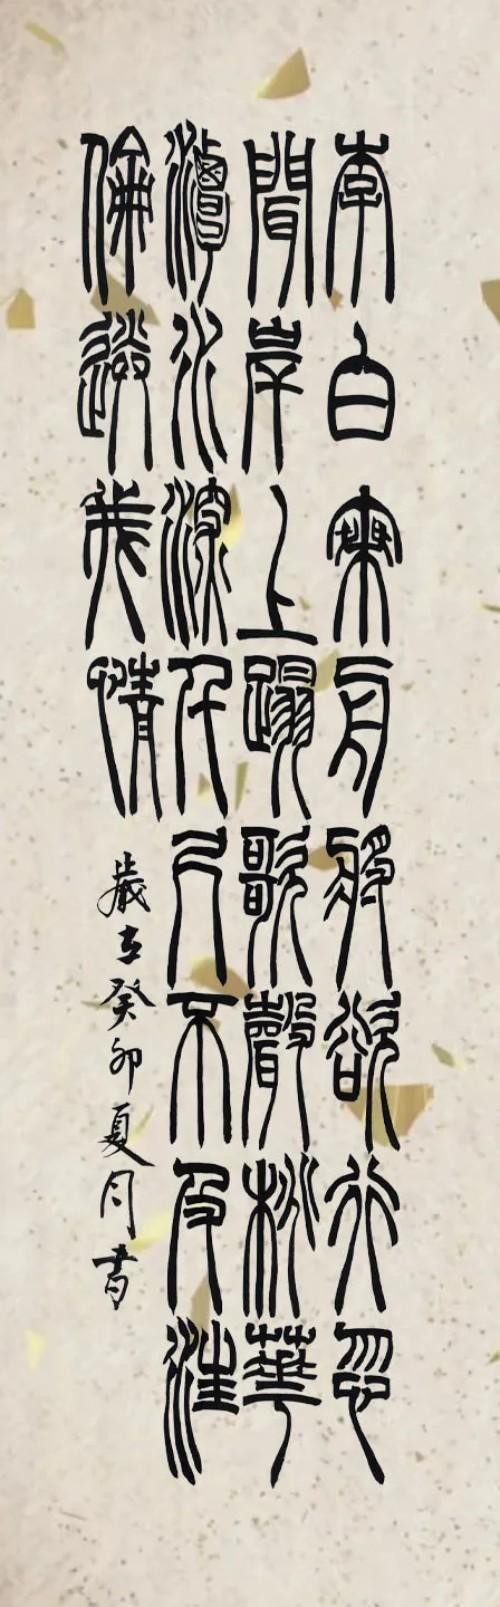 李白乘舟將欲行忽
聞岸上蹋歌聲桃華
潭水深千尺不及汪
倫送我情
歲在癸卯夏月書